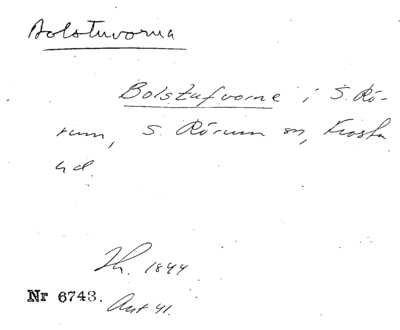 Bolstuvorna
Bolstufvorne i S. Rö-
rum, S. Rörum sn, Frosta
hd.
Th. 1844
Nr 6743. Ant 41.